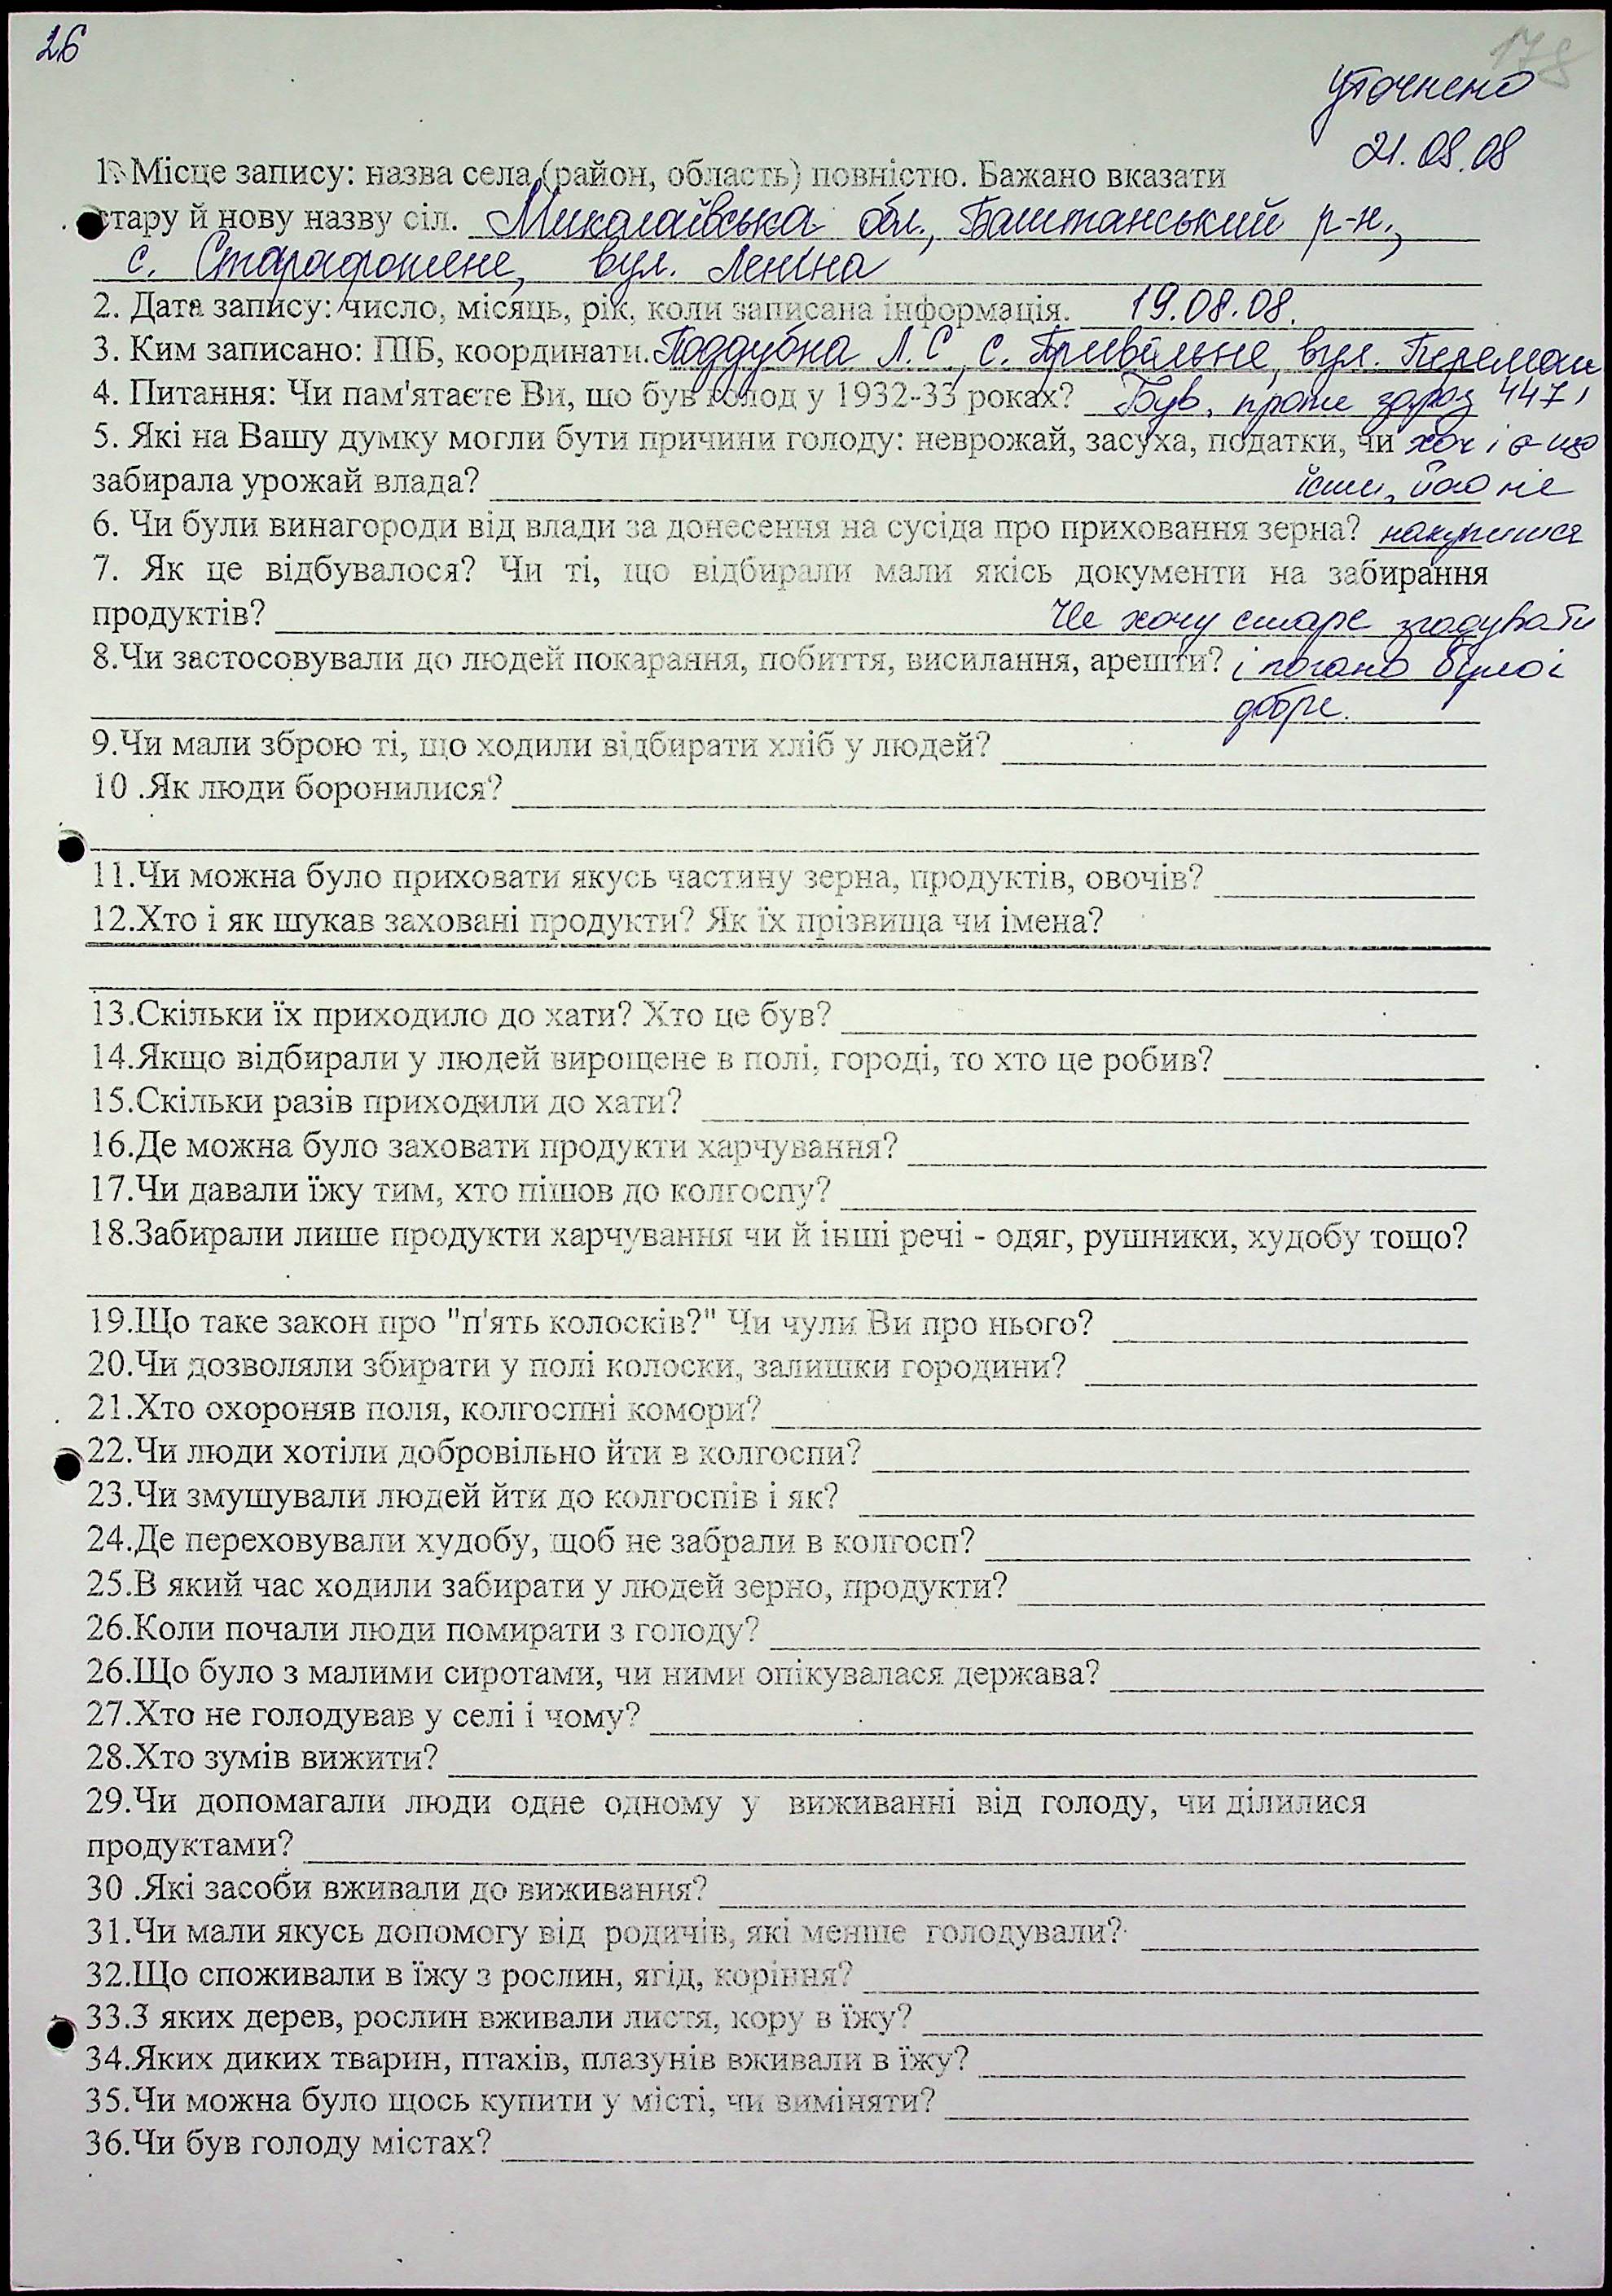 26
178
уточнено
21.08.08
1. Місце запису: назва села (район, область) повністю. Бажано вказати
стару й нову назву сіл. Миколаївська обл., Баштанський р-н.,
с. Старагорожене, вул. Леніна
2. Дата запису: число, місяць, рік, коли записана інформація. 19.08.08.
3. Ким записано: ПІБ, координати. Поддубна Л.С, с. Привільне, вул.
4. Питання: Чи пам'ятаєте Ви, що був голод у 1932-33 роках? Був, проте зараз 447,
5. Які на Вашу думку могли бути причини голоду: неврожай, засуха, податки, чи хоч і є що
забирала урожай влада? їсти,
6. Чи були винагороди від влади за донесення на сусіда про приховання зерна?
7. Як це відбувалося? Чи ті, що відбирали мали якісь документи на забирання
продуктів? Не хочу старе згадувати
8.Чи застосовували до людей покарання, побиття, висилання, арешти? і погано було і
добре.
9.Чи мали зброю ті, що ходили відбирати хліб у людей?
10 .Як люди боронилися?
11.Чи можна було приховати якусь частину зерна, продуктів, овочів?
12.Хто і як шукав заховані продукти? Як їх прізвища чи імена?
13.Скільки їх приходило до хати? Хто це був?
14.Якщо відбирали у людей вирощене в полі, городі, то хто це робив?
15.Скільки разів приходили до хати?
16.Де можна було заховати продукти харчування?
17.Чи давали їжу тим, хто пішов до колгоспу?
18.Забирали лише продукти харчування чи й інші речі - одяг, рушники, худобу тощо?
19.Що таке закон про "п'ять колосків?" Чи чули Ви про нього?
20.Чи дозволяли збирати у полі колоски, залишки городини?
21.Хто охороняв поля, колгоспні комори?
22.Чи люди хотіли добровільно йти в колгоспи?
23.Чи змушували людей йти до колгоспів і як?
24.Де переховували худобу, щоб не забрали в колгосп?
25.В який час ходили забирати у людей зерно, продукти?
26.Коли почали люди помирати з голоду?
26.Що було з малими сиротами, чи ними опікувалася держава?
27.Хто не голодував у селі і чому?
28.Хто зумів вижити?
29.Чи допомагали люди одне одному у виживанні від голоду, чи ділилися
продуктами?
30 .Які засоби вживали до виживання?
31.Чи мали якусь допомогу від родичів, які менше голодували?
32.Що споживали в їжу з рослин, ягід, коріння?
33.З яких дерев, рослин вживали листя, кору в їжу?
34.Яких диких тварин, птахів, плазунів вживали в їжу?
35.Чи можна було щось купити у місті, чи виміняти?
36.Чи був голоду містах?